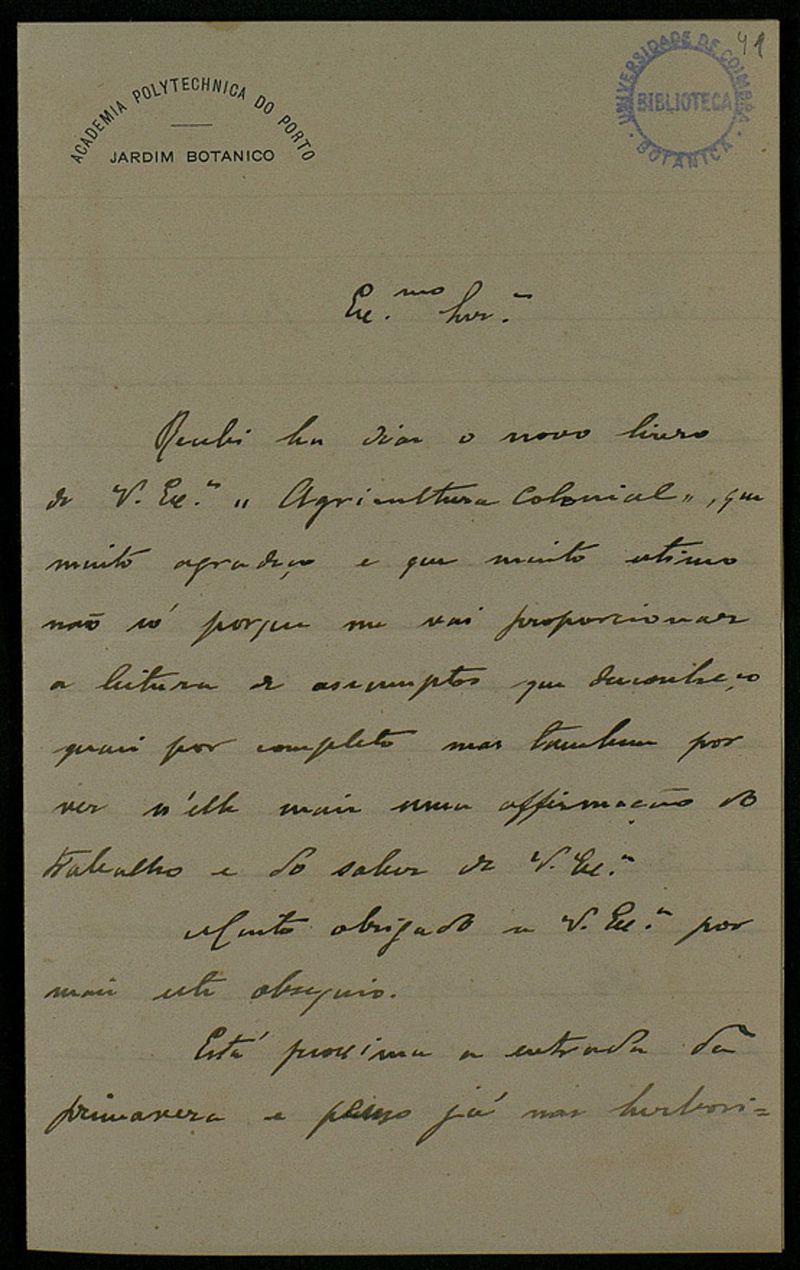 ACADEMIA POLYTECHNICA DO PORTO
JARDIM BOTANICO
UNIVERSIDADE DE COIMBRA
BIBLIOTECA
BOTANICA
Ex.mo Snr.
Recebi ha dias o novo livro
de V. Ex.a "Agricultura Colonial", que
muito agradeço e que muito estimo
não só porque me vai proporcionar
a leitura de assumptos que desconheço
quasi por completo mas tambem por
ver n'elle mais uma affirmação do
trabalho e do saber de V. Ex.a
Muito obrigado a V. Ex.a por
mais este obsequio.
Está proxima a entrada da
primavera e penso já nas herbori=